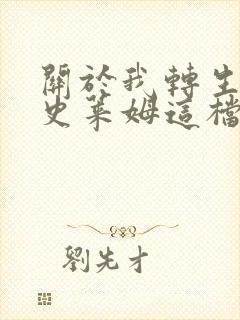 關於我轉生
史萊姆這檔
劉先才